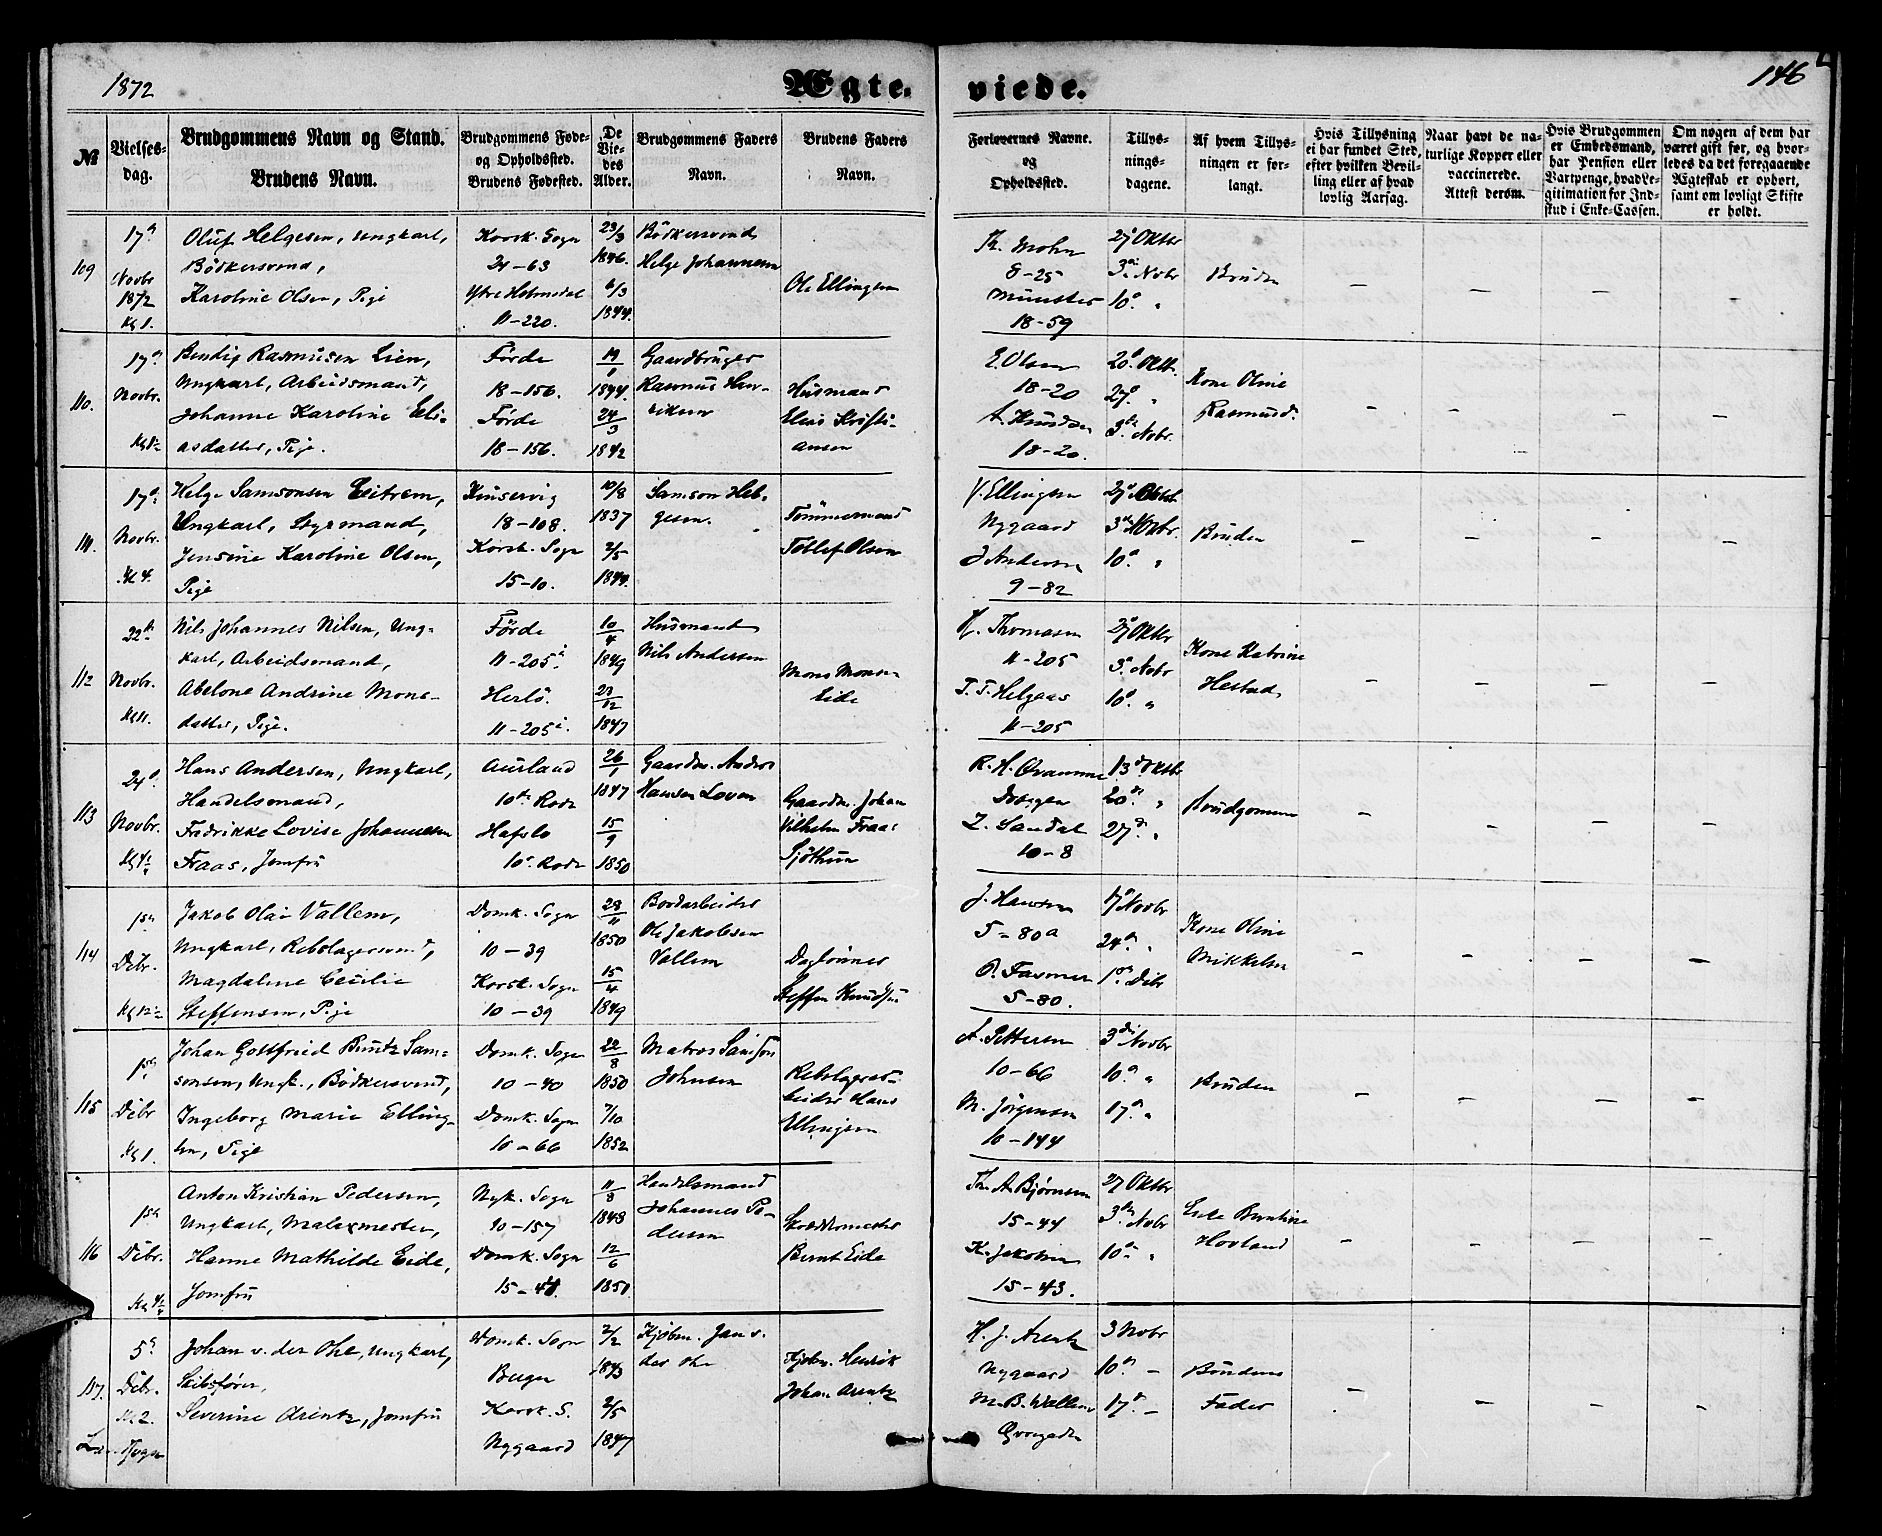 1872
Ægte-
viede.
146
№
Vielses-
dag.
Brudgommens Navn og Stand.
Brudens Navn.
Brudgommens Føde-
og Opholdssted.
Brudens Fødested.
De
Vie-
des
Alder.
Brudgommens Faders
Navn.
Brudens Faders
Navn.
Forlovernes Navne.
og
Opholdssted.
Tillys-
nings-
dagene.
Af hvem Tillys-
ningen er for-
langt.
Hvis Tillysning
ei har fundet Sted,
efter hvilken Bevil-
ling eller af hvad
lovlig Aarsag.
Naar havt de na-
turlige Kopper eller
vaccinerede.
Attest derom.
Hvis Brudgommen
er Embedsmand,
har Pension eller
Vartpenge, hvad Le-
gitimation for Ind-
skud i Enke-Cassen.
Om nogen af dem har
været gift før, og hvor-
ledes da det foregaaende
Ægteskab er ophørt,
samt om lovligt Skifte
er holdt.
109
17de
Novbr
1872
Kl 1.
Oluf Helgesen, Ungkarl,
Bødkersvend,
Karoline Olsen, Pige
Korsk. Sogn
24-63
Ytre Holmedal
11-220.
23/3
1846.
6/3
1844.
Bødkersvend
Helge Johannesen
Ole Ellingsen
Th. Mohn
8-25
Münster
18-59
27 Oktbr
3die Novbr
10de "
Bruden
110.
17de
Novbr.
Bendig Rasmusen Lien,
Ungkarl, Arbeidsmand,
Johanne Karoline Eli-
asdatter, Pige.
Førde
18-156.
Førde
18-156.
1844.
24/3
1842
Gaardbruger
Rasmus Hen-
riksen
Husmand
Elias Kristi-
ansen
E. Olsen
18-20
A. Knudsen
18-20.
20de Oktbr.
27de "
3die Nobr.
Kone Oline
Rasmusd.
111.
17de
Novbr.
Kl 4.
Helge Samsonsen Eitrem,
Ungkarl, Styrmand,
Jensine Karoline Olsen,
Pige
Kinservig
18-108.
Korsk. Sogn
15-10.
10/8
1837
2/5
1844.
Samson Hel-
gesen.
Tømmermand
Tollef Olsen
J. Ellingsen
Nygaard
J. Andersen
9-82
27de Oktbr.
3die Novbr.
10de "
Bruden
112
22de
Novbr.
Kl 11.
Nils Johannes Nilsen, Ung-
karl, Arbeidsmand,
Abelone Andrine Mons-
datter, Pige.
Førde
11-205i
Herlø.
11-205i.
10/4
1849
23/12
1847
Husmand
Nils Andersen
Mons Monsen
Eide
H. Thomasen
11-205
T. T. Helgaas
11-205
27de Oktbr
3die Nobr
10de "
Kone Katrine
Hestad
113
24de
Novbr.
Hans Andersen, Ungkarl,
Handelsmand,
Fredrikke Lovise Johannesen
Fraas, Jomfru
Aurland
10de Rode
Hafslo
10de Rode
26/1
1847
15/9
1850
Gaardm. Anders
Hansen Loven
Gaardm. Johan
Vilhelm Fraas
R. H. Qvamme
Z. Sandal
10-8
13de Oktbr
20de "
27de "
Brudgommen
114
1ste
Debr.
Jakob Olai Vallem,
Ungkarl, Rebslagersvend,
Magdalene Cecilie
Steffensen, Pige
Domk. Sogn
10-39
Korsk. Sogn
10-39
23/11
1850
15/4
1849
Bordarbeider
Ole Jakobsen
Vallem
Daglønner
Steffen Knudsen
J. Hansen
5-80a
P. Fasmer
5-80.
17de Novbr
24de "
1ste Debr
Kone Oline
Mikkelsen
115
1ste
Debr
Kl 1.
Johan Gottfried Buntz Sam-
sonsen, Ungk., Bødkersvend,
Ingeborg Marie Elling-
sen, Pige
Domk. Sogn
10-40
Domk. Sogn
10-66
22/8
1850
7/10
1852
Matros Samson
Johnsen
Rebslagerar-
beider Hans
Ellingsen
A. Pettersen
10-66
M. Jørgensen
10-144
3die Novbr
10de "
17de "
Bruden
116
1ste
Debr.
Anton Kristian Pedersen,
Ungkarl, Malermester,
Hanne Mathilde Eide,
Jomfru
Nyk. Sogn
20-157
Domk. Sogn
15-41.
11/8
1848
12/6
1850
Handelsmand
Johannes Pe-
dersen
Skræddermester
Bernt Eide
Th. A. Bjørnsen
15-44
K. Jakobsen
15-43.
27 Oktbr
3die Nobr
10de "
Enke Berntine
Hovland
117.
5te
Debr.
Kl 2.
Johan v. der Ohe, Ungkarl,
Skibsfører,
Severine Arentz, Jomfru
Domk. Sogn
Bergen
Korsk. S.
Nygaard
2/2
1843
2/5
1847
Kjøbm. Jan v.
der Ohe
Kjøbm. Henrik
Johan Arentz
H. J. Arentz
Nygaard
3 Nobr
10de -
17de -
Brudens
Fader